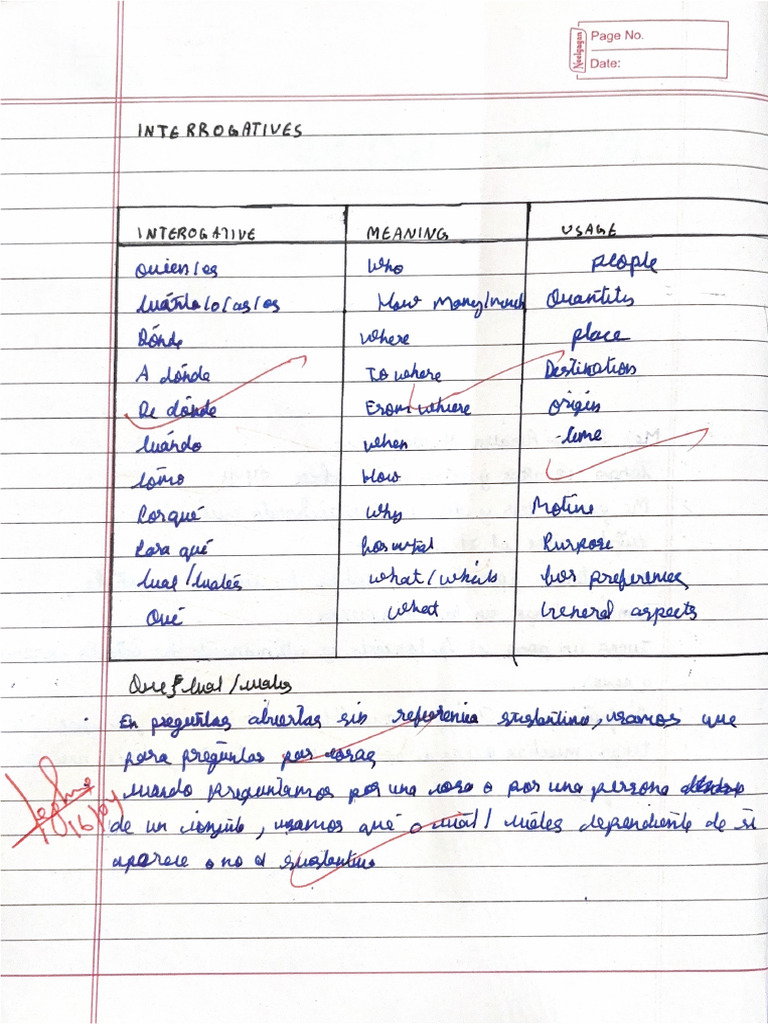 Neelgagan
Page No.
Date:
INTERROGATIVES
INTEROGATIVE MEANING USAGE
Quien/es who people
Cuánto/a/as/os How Many/much Quantity
Dónde where place
A dónde To where Destination
De dónde From where origin
Cuándo when time
Cómo How
Por qué why Motive
Para qué for what Purpose
Cual/Cuales what/which for preferences
Qué what General aspects
Que & Cual/Cuales
En preguntas abiertas sin referencia sustantivo, usamos que
para preguntas por cosas
Cuando preguntamos por una cosa o por una persona
de un conjunto, usamos qué o cuál/ cuáles dependiente de si
aparece o no el sustantivo
16/04